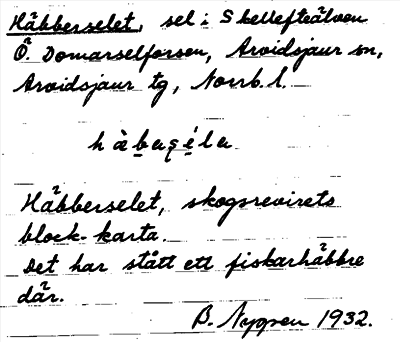 Häbberselet, sel i Skellefteälven
Ö. Domarselforsen, Arvidsjaur sn,
Arvidsjaur tg, Norrb. l.
Häbberselet, skogsrevirets
block-karta.
Det har stått ett fiskarhäbbre
där.
B. Nygren 1932.